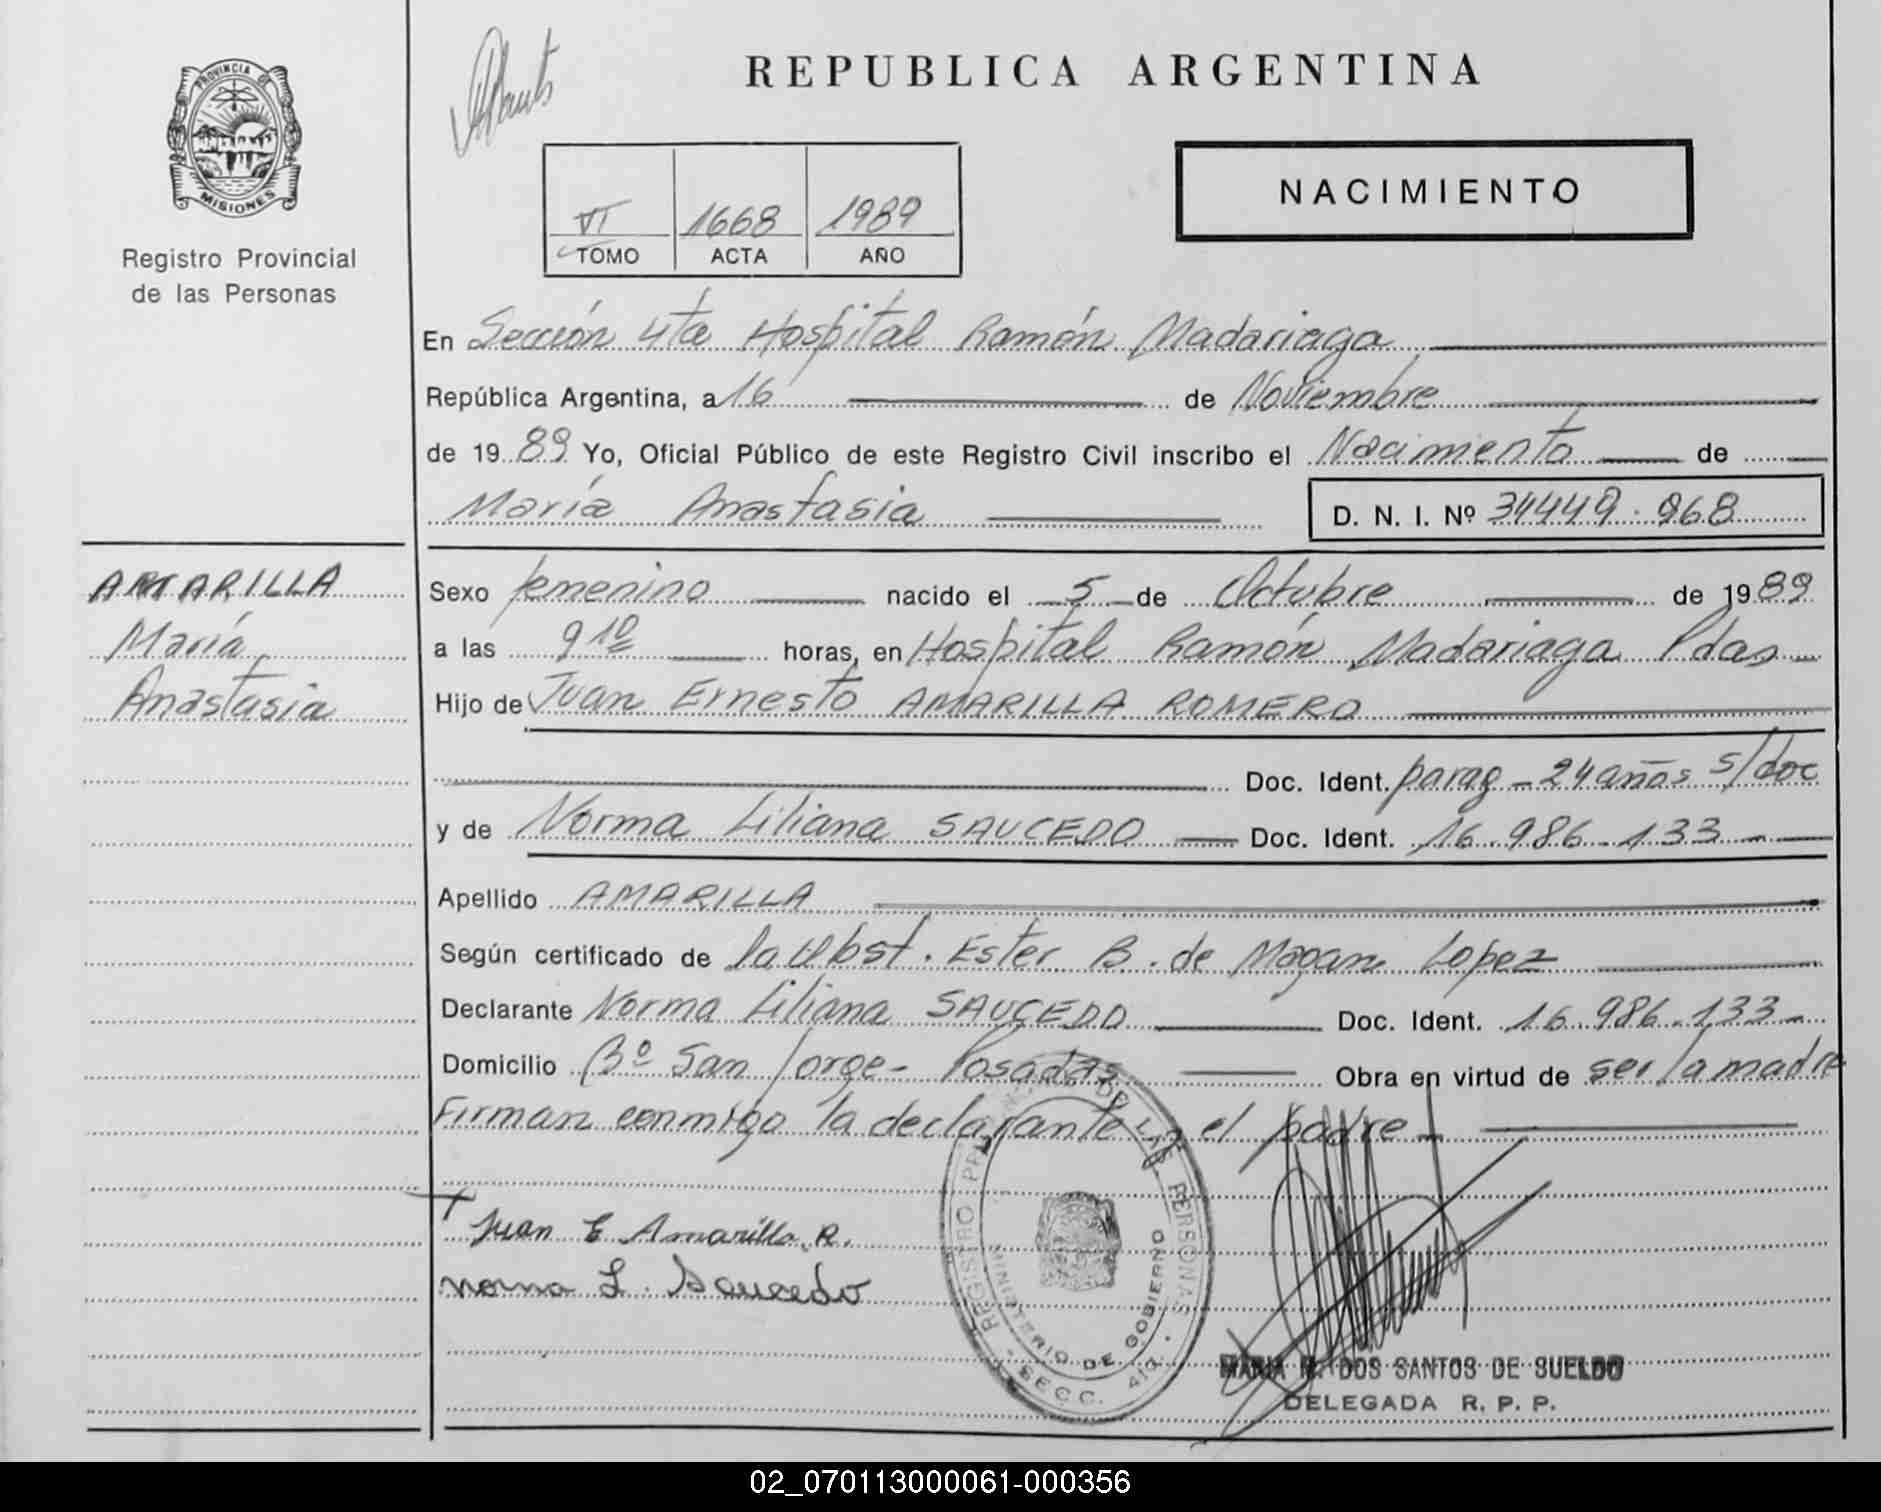 PROVINCIA DE
MISIONES
Registro Provincial
de las Personas
REPUBLICA ARGENTINA
NACIMIENTO
VI 1668 1989
TOMO ACTA AÑO
En Sección 4ta Hospital Ramón Madariaga
República Argentina, a 16 de Noviembre
de 1989 Yo, Oficial Público de este Registro Civil inscribo el Nacimiento de
María Anastasia D. N. I. Nº 34449.968
AMARILLA
María
Anastasia
Sexo femenino nacido el 5 de Octubre de 1989
a las 9 10 horas, en Hospital Ramón Madariaga Pdas
Hijo de Juan Ernesto AMARILLA ROMERO
Doc. Ident. parag - 24 años s/doc
y de Norma Liliana SAUCEDO Doc. Ident. 16.986.133
Apellido AMARILLA
Según certificado de la Obst. Ester B. de Lopez
Declarante Norma Liliana SAUCEDO Doc. Ident. 16.986.133
Domicilio Bº San Jorge - Posadas Obra en virtud de ser la madre
Firman conmigo la declarante y el padre
Juan E Amarilla R.
Norma L. Saucedo
REGISTRO DE LAS PERSONAS
MINISTERIO DE GOBIERNO
SECC.
MARIA DOS SANTOS DE SUELDO
DELEGADA R. P. P.
02_070113000061-000356